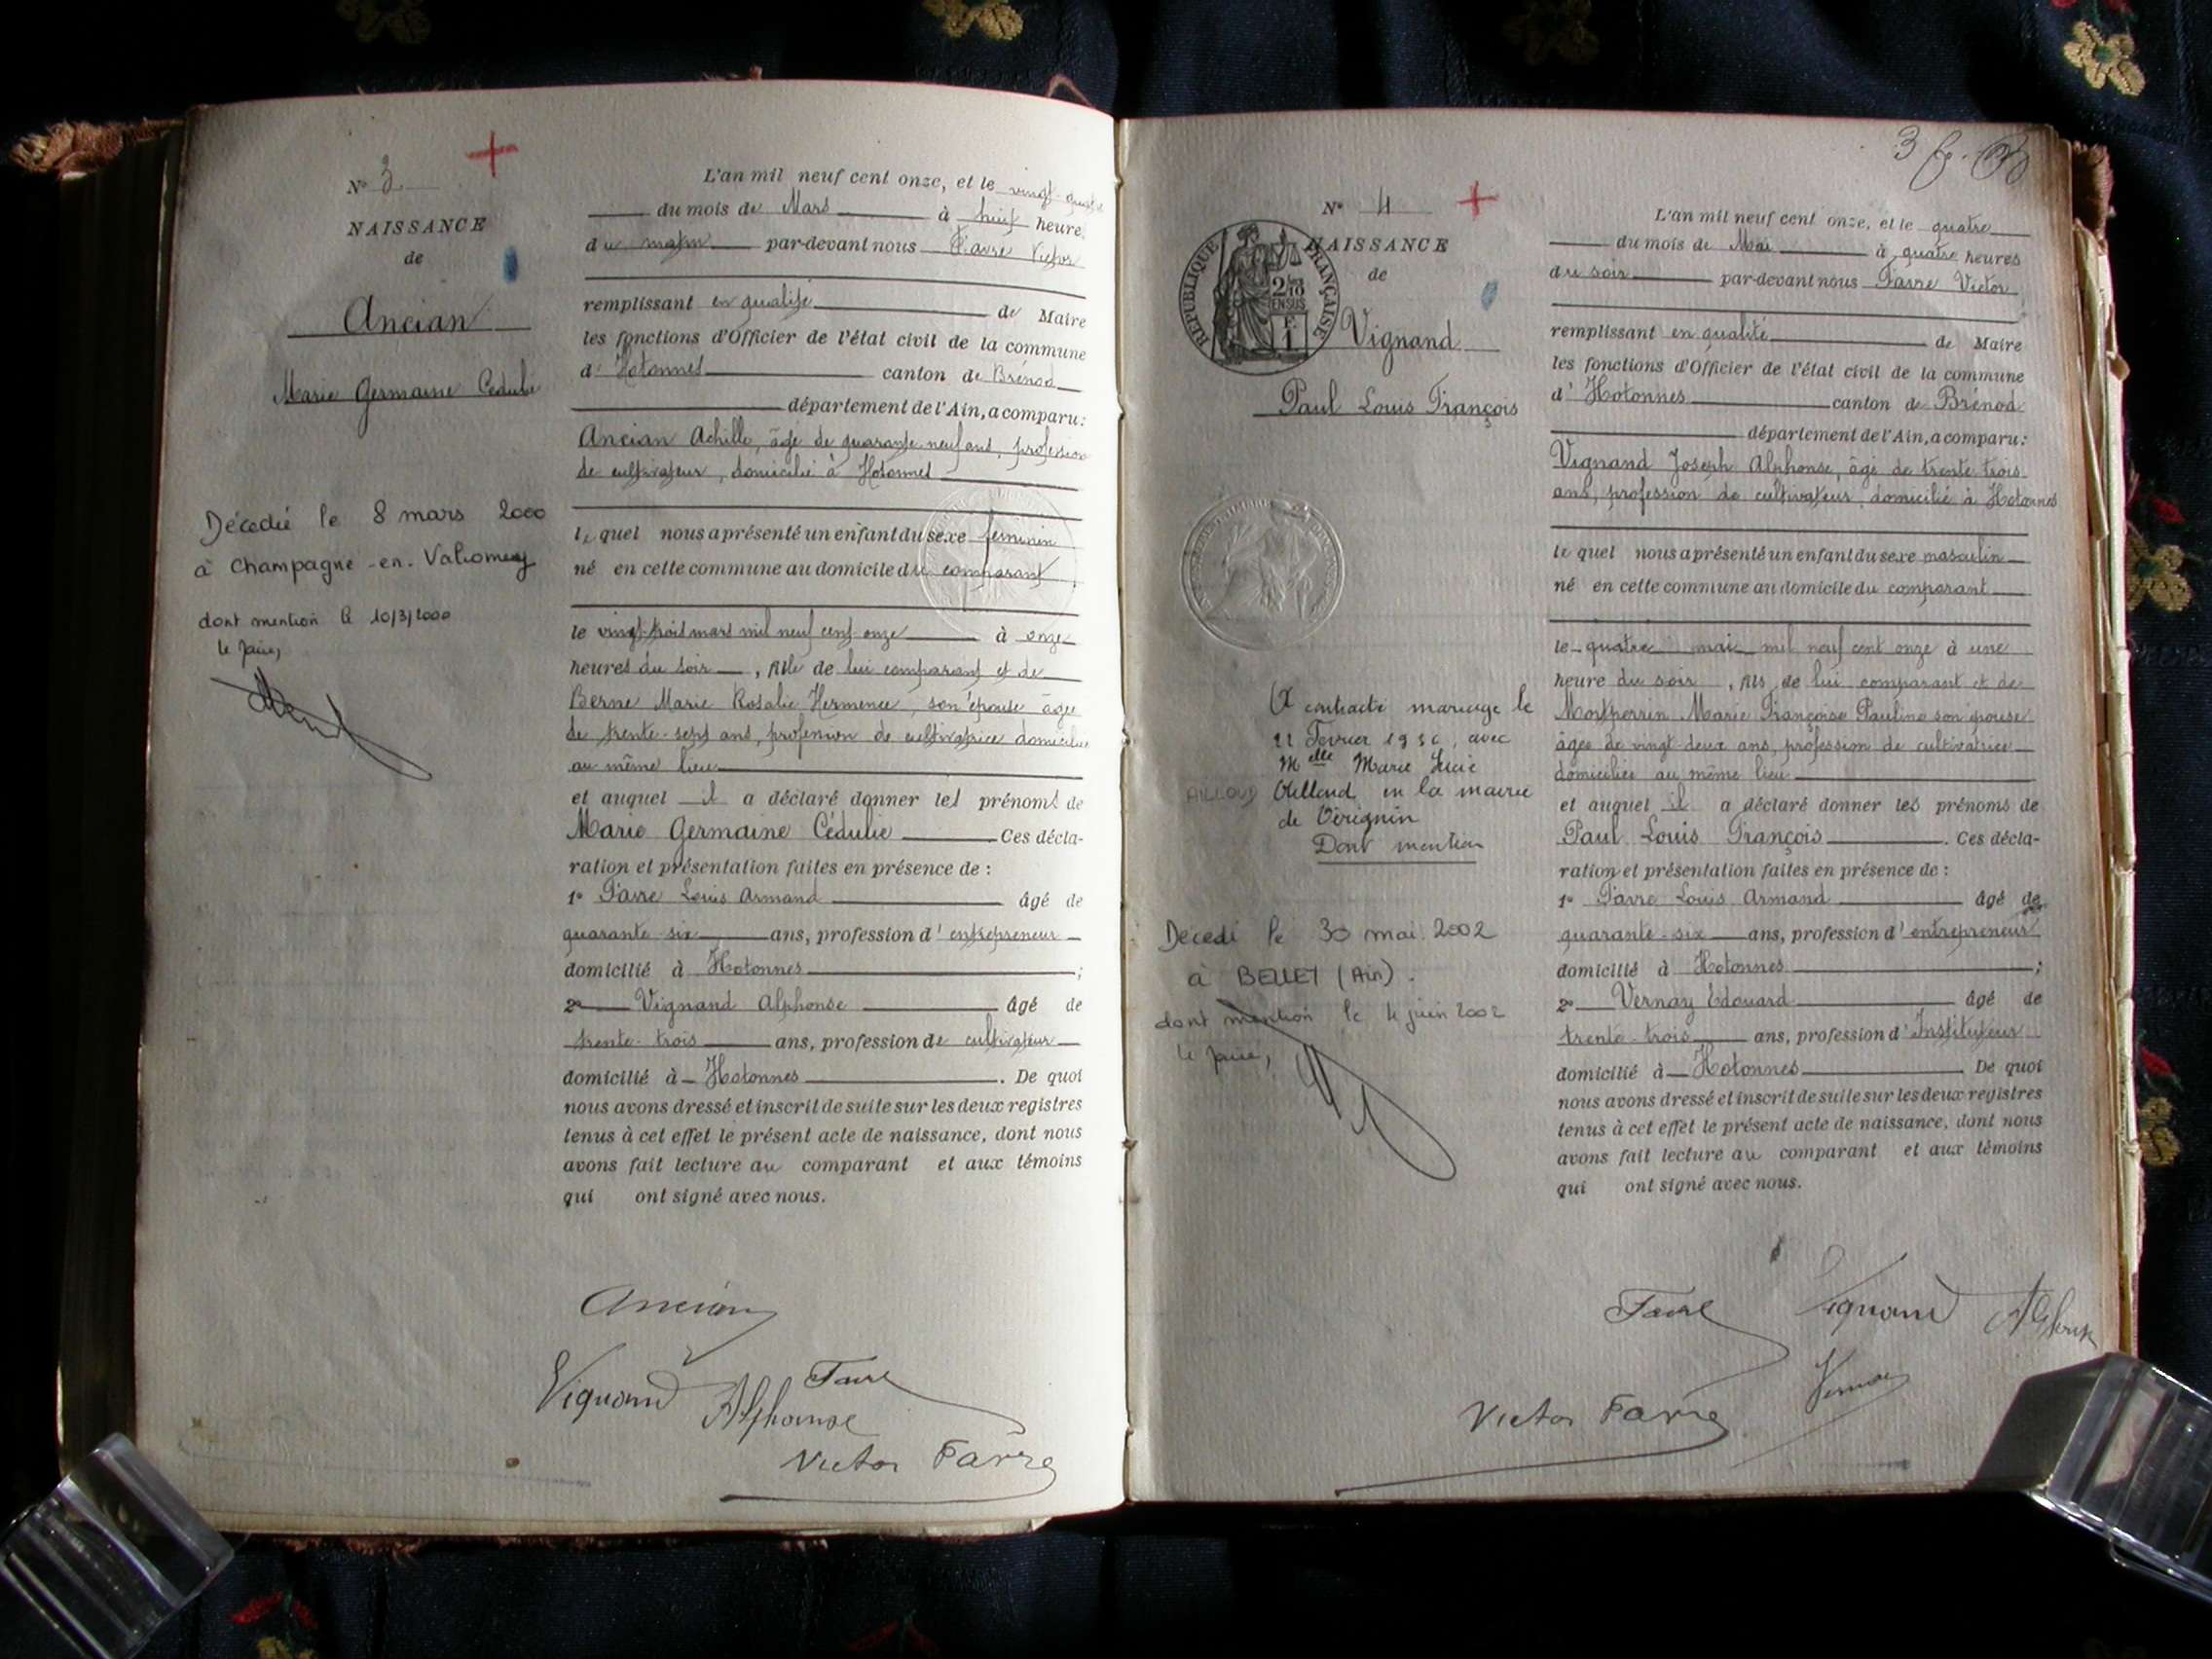 N° 3.
NAISSANCE
de
Ancian
Marie Germaine Cédulie
Décédée le 8 mars 2000
à Champagne-en-Valromey
dont mention le 10/3/2000
le Maire,
L'an mil neuf cent onze, et le vingt-quatre
du mois de Mars à huit heure
du matin par-devant nous Favre Victor
remplissant en qualité de Maire
les fonctions d'Officier de l'état civil de la commune
d' Hotonnes canton de Brénod
département de l'Ain, a comparu:
Ancian Achille, âgé de quarante neuf ans, profession
de cultivateur, domicilié à Hotonnes
le quel nous a présenté un enfant du sexe féminin
né en cette commune au domicile du comparant,
le vingt-trois mars mil neuf cent onze à onze
heures du soir, fille de lui comparant et de
Berne Marie Rosalie Hermence, son épouse âgée
de trente-sept ans, profession de cultivatrice domiciliée
au même lieu
et auquel il a déclaré donner les prénoms de
Marie Germaine Cédulie Ces décla-
ration et présentation faites en présence de :
1° Favre Louis Armand âgé de
quarante-six ans, profession d' entrepreneur
domicilié à Hotonnes ;
2° Vignand Alphonse âgé de
trente-trois ans, profession de cultivateur
domicilié à Hotonnes. De quoi
nous avons dressé et inscrit de suite sur les deux registres
tenus à cet effet le présent acte de naissance, dont nous
avons fait lecture au comparant et aux témoins
qui ont signé avec nous.
Ancian
Vignand Alphonse Favre
Victor Favre
3 f.
N° 4
RÉPUBLIQUE FRANÇAISE
2/10
EN SUS
F.
1
NAISSANCE
de
Vignand
Paul Louis François
A contracté mariage le
Février, avec
Melle Marie Lucie
AILLOUD Ailloud en la mairie
de Virignin
Dont mention
Décédé le 30 mai 2002
à BELLEY (Ain).
dont mention le 4 juin 2002
le Maire,
L'an mil neuf cent onze, et le quatre
du mois de Mai à quatre heures
du soir par-devant nous Favre Victor
remplissant en qualité de Maire
les fonctions d'Officier de l'état civil de la commune
d' Hotonnes canton de Brénod
département de l'Ain, a comparu:
Vignand Joseph Alphonse, âgé de trente-trois
ans, profession de cultivateur domicilié à Hotonnes
le quel nous a présenté un enfant du sexe masculin
né en cette commune au domicile du comparant
le quatre mai mil neuf cent onze à une
heure du soir, fils de lui comparant et de
Montperrin Marie Françoise Pauline son épouse
âgée de vingt-deux ans, profession de cultivatrice
domiciliée au même lieu
et auquel il a déclaré donner les prénoms de
Paul Louis François. Ces décla-
ration et présentation faites en présence de :
1° Favre Louis Armand âgé de
quarante-six ans, profession d' entrepreneur
domicilié à Hotonnes ;
2° Vernay Edouard âgé de
trente-trois ans, profession d' Instituteur
domicilié à Hotonnes De quoi
nous avons dressé et inscrit de suite sur les deux registres
tenus à cet effet le présent acte de naissance, dont nous
avons fait lecture au comparant et aux témoins
qui ont signé avec nous.
Favre Vignand
Victor Favre Vernay